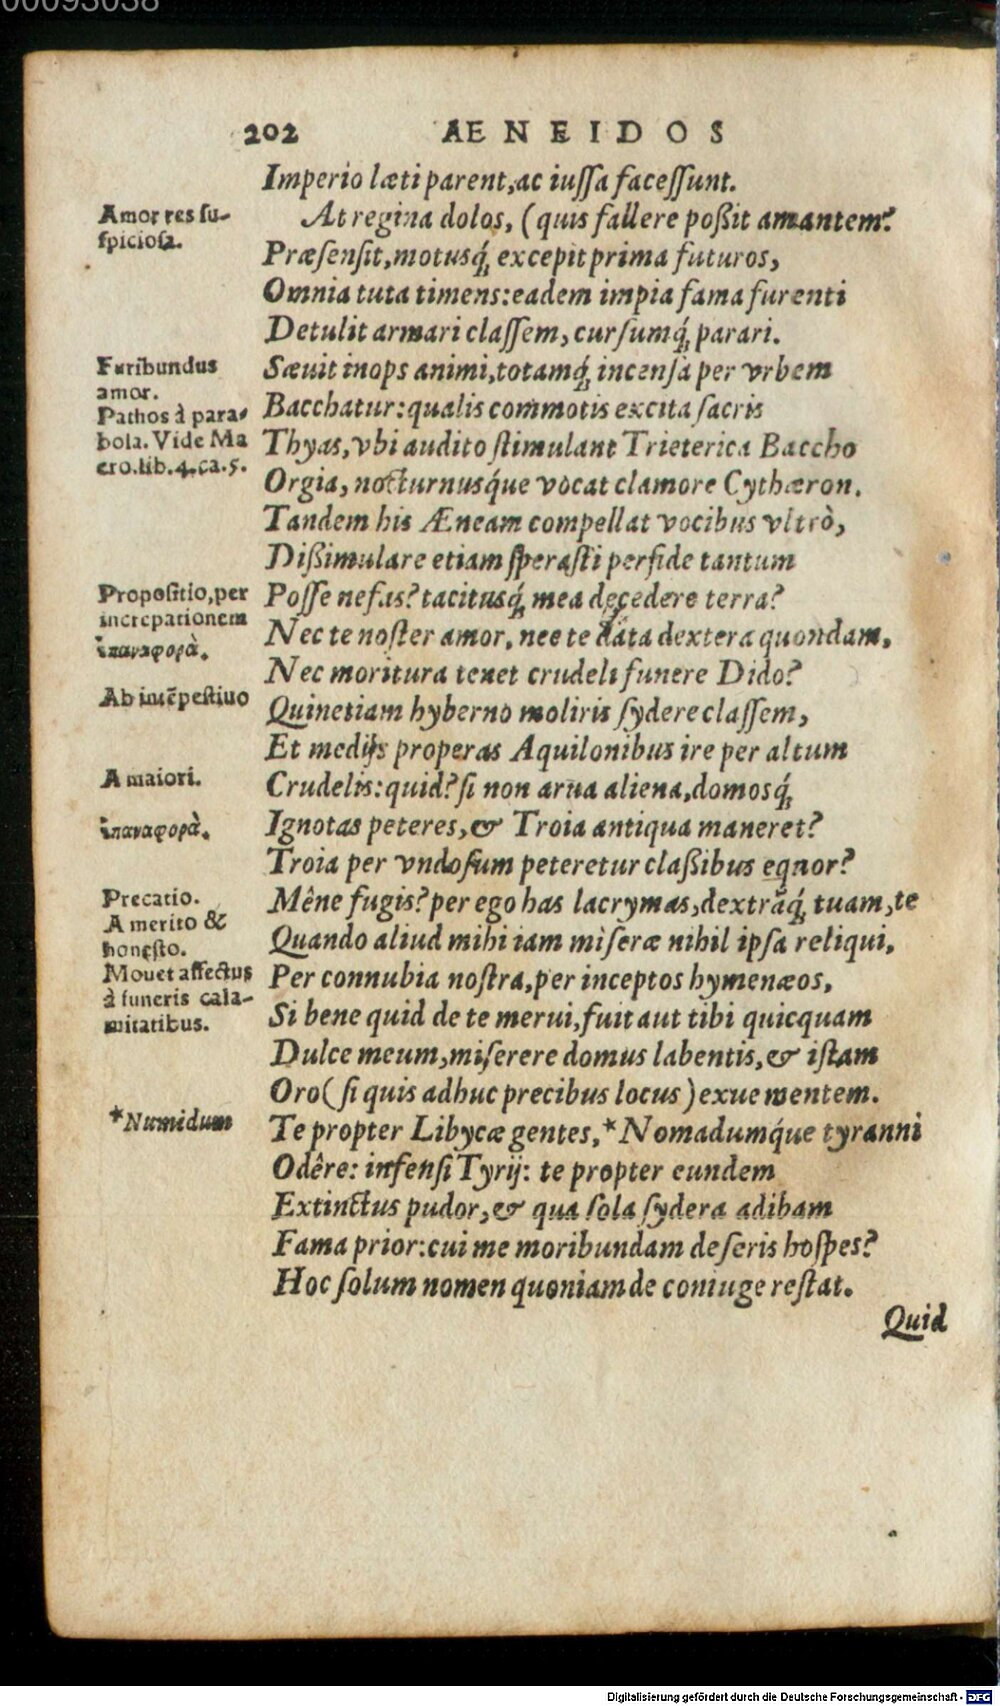 00093038
202 AENEIDOS
Imperio læti parent, ac iussa facessunt.
Amor res su-
spiciosa.
At regina dolos, (quis fallere poßit amantem?
Præsensit, motusq́; excepit prima futuros,
Omnia tuta timens: eadem impia fama furenti
Detulit armari classem, cursumq́; parari.
Furibundus
amor.
Pathos à para-
bola. Vide Ma
cro.lib.4.ca.5.
Sæuit inops animi, totamq́; incensa per vrbem
Bacchatur: qualis commotis excita sacris
Thyas, vbi audito stimulant Trieterica Baccho
Orgia, nocturnusq́ue vocat clamore Cythæron.
Tandem his Æneam compellat vocibus vltrò,
Dißimulare etiam sperasti perfide tantum
Propositio, per
increpationem
ἐπαναφορὰ.
Posse nefas? tacitusq́; mea decedere terra?
Nec te noster amor, nec te data dextera quondam,
Nec moritura tenet crudeli funere Dido?
Ab intẽpestiuo
Quinetiam hyberno moliris sydere classem,
Et medijs properas Aquilonibus ire per altum
A maiori.
Crudelis: quid? si non arua aliena, domosq́;
ἐπαναφορὰ.
Ignotas peteres, & Troia antiqua maneret?
Troia per vndosum peteretur claßibus eqnor?
Precatio.
A merito &
honesto.
Mouet affectus
à funeris cala-
mitatibus.
Mêne fugis? per ego has lacrymas, dextrãq́; tuam, te
Quando aliud mihi iam miseræ nihil ipsa reliqui,
Per connubia nostra, per inceptos hymenæos,
Si bene quid de te merui, fuit aut tibi quicquam
Dulce meum, miserere domus labentis, & istam
Oro (si quis adhuc precibus locus) exue mentem.
*Numidum
Te propter Libycæ gentes, *Nomadumq́ue tyranni
Odêre: infensi Tyrij: te propter eundem
Extinctus pudor, & qua sola sydera adibam
Fama prior: cui me moribundam deseris hospes?
Hoc solum nomen quoniam de coniuge restat.
Quid
Digitalisierung gefördert durch die Deutsche Forschungsgemeinschaft - DFG